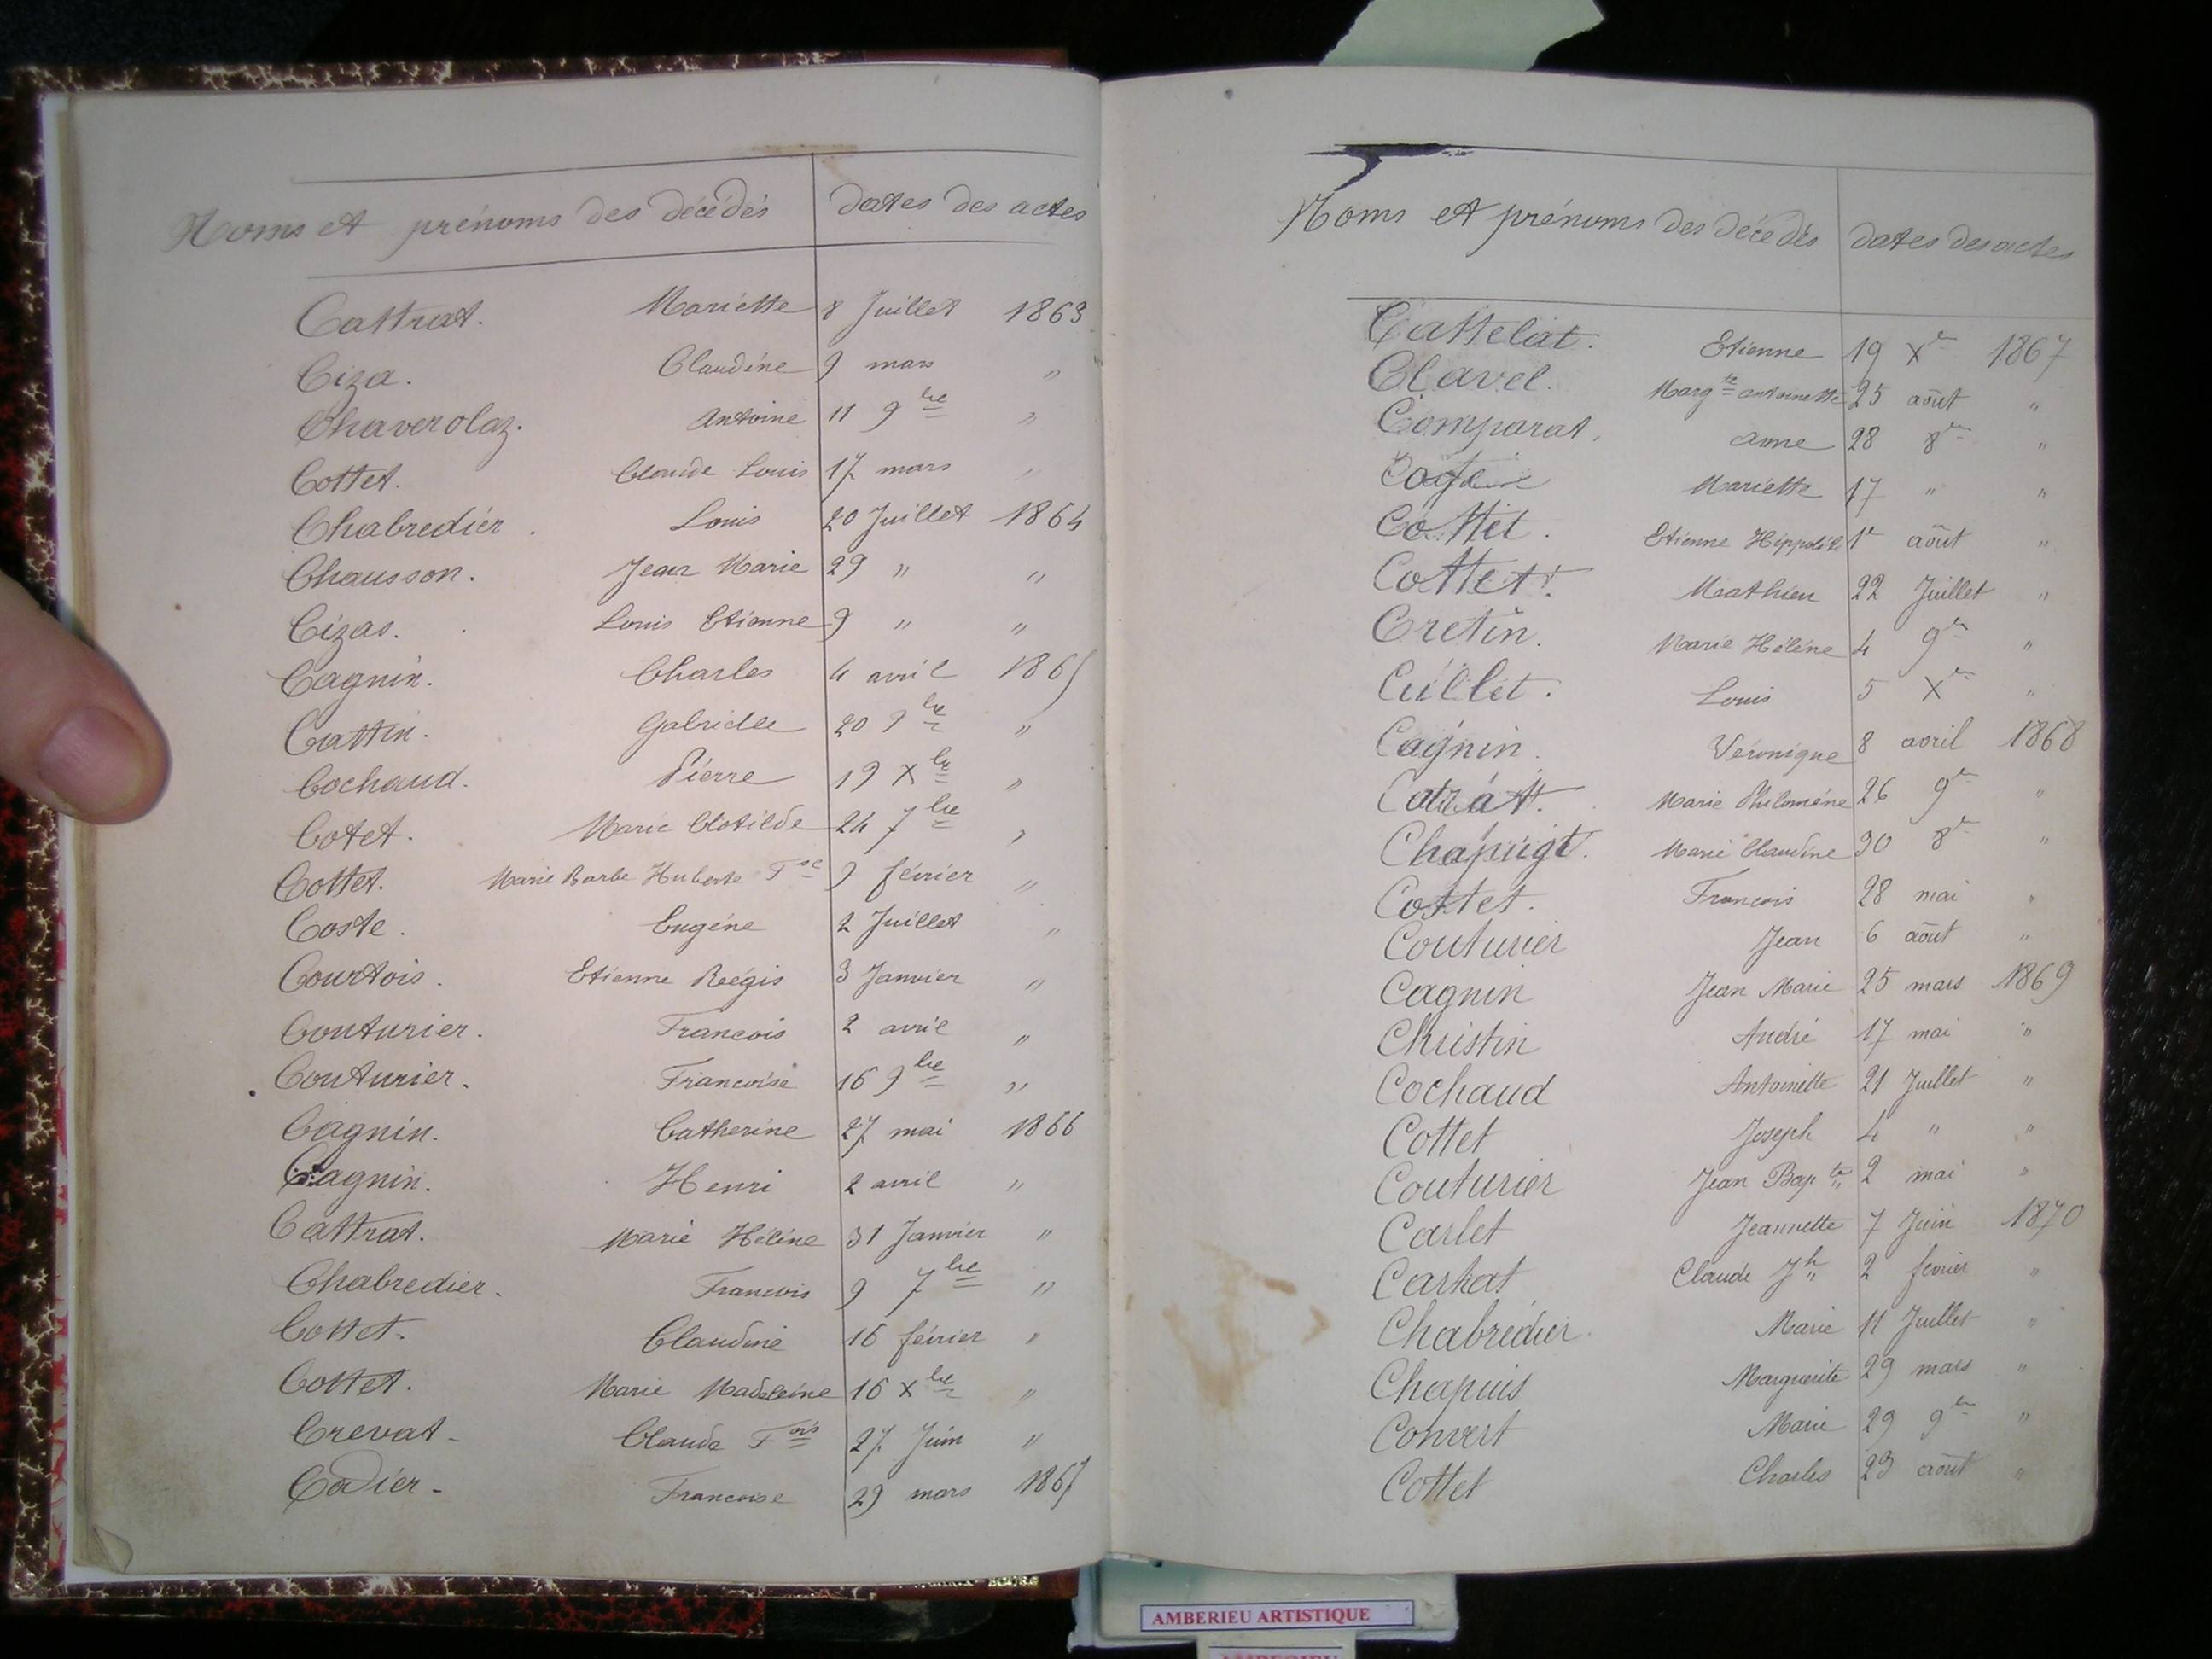 Noms et prénoms des décédés dates des actes
Cattrat. Mariette 8 Juillet 1863
Ciza. Claudine 9 mars "
Chaverolaz. Antoine 11 9bre "
Cottet. Claude Louis 17 mars "
Chabredier. Louis 20 Juillet 1864
Chausson. Jean Marie 29 " "
Cizas. Louis Etienne 9 " "
Cagnin. Charles 4 avril 1865
Cattin. Gabrielle 20 9bre "
Cochaud. Pierre 19 Xbre "
Cotet. Marie Clotilde 24 7bre "
Cottet. Marie Barbe Huberte Fse 9 février "
Coste. Eugéne 2 Juillet "
Courtois. Etienne Régis 3 Janvier "
Couturier. Francois 2 avril "
Couturier. Francoise 16 9bre "
Cagnin. Catherine 27 mai 1866
Cagnin. Henri 2 avril "
Cattrat. Marie Héléne 31 Janvier "
Chabredier. Francois 9 7bre "
Cottet. Claudine 16 février "
Cottet. Marie Madeleine 16 Xbre "
Crevat - Claude Fois 27 Juin "
Cadier - Francoise 29 mars 1867
Noms et prénoms des décédés dates des actes
Cattelat. Etienne 19 Xre 1867
Clavel. Margte antoinette 25 août "
Comparat. anne 28 8re "
Mariette 17 " "
Cottet. Etienne Hippolite 1er août "
Cottet. Mathieu 22 Juillet "
Cretin. Marie Héléne 4 9re "
Cuillet. Louis 5 Xre "
Cagnin. Véronique 8 avril 1868
Marie Philoméne 26 9re "
Marie Claudine 30 8re "
Cottet. Francois 28 mai "
Couturier Jean 6 août "
Cagnin Jean Marie 25 mars 1869
Christin André 17 mai "
Cochaud Antoinette 21 Juillet "
Cottet Joseph 4 " "
Couturier Jean Bapte 2 mai "
Carlet Jeannette 7 Juin 1870
Claude Jh 2 février "
Chabredier. Marie 11 Juillet "
Chapuis Marguerite 29 mars "
Convert Marie 29 9re "
Cottet Charles 23 août "
AMBERIEU ARTISTIQUE